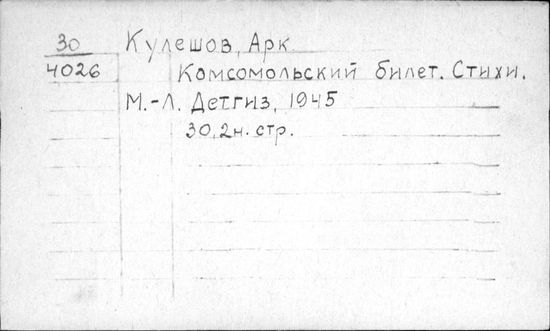 30
4026
Кулешов, Арк
Комсомольский билет. Стихи.
М.-Л. Детгиз, 1945
30, 2н. стр.